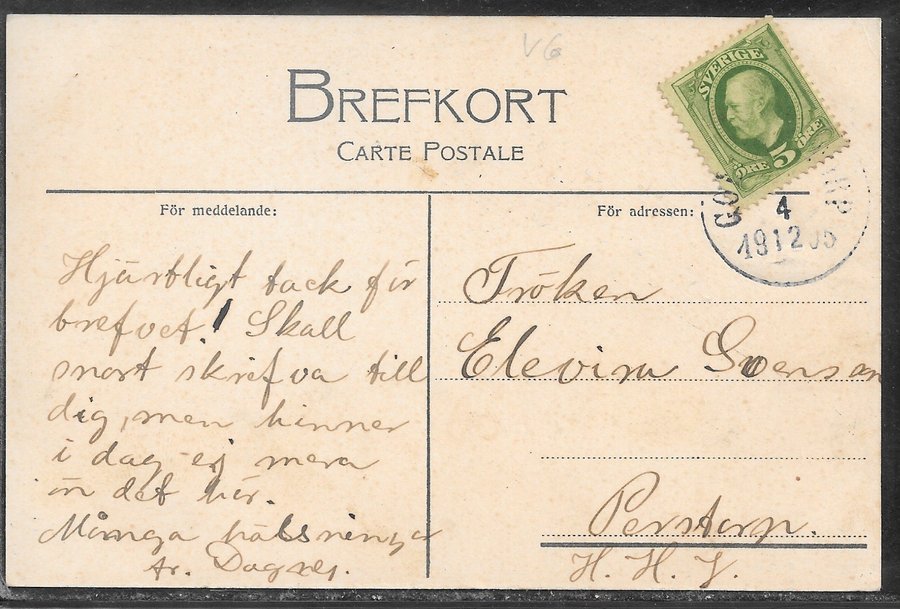 V6
BREFKORT
CARTE POSTALE
SVERIGE
ÖRE 5 ÖRE
4
1912 05
För meddelande:
Hjärtligt tack för
brefvet! Skall
snart skrifva till
dig, men hinner
i dag ej mera
än det här.
Många hälsningar
fr. Dagny.
För adressen:
Fröken
Elevira Svensson
Perstorp.
H. H. J.